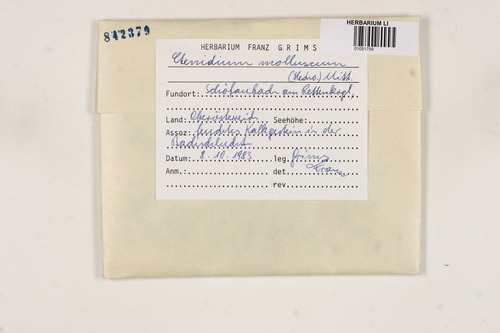 842379
HERBARIUM LI
01051759
HERBARIUM FRANZ GRIMS
Ctenidium molluscum
(Hedw.) Mitt.
Fundort: am Rettenkogl,
Land: Oberösterreich Seehöhe:
Assoz: feuchtes Kalkgestein in der
Bachschlucht
Datum: 8.10.1983 leg. Grims
Anm.: det Grims
rev.